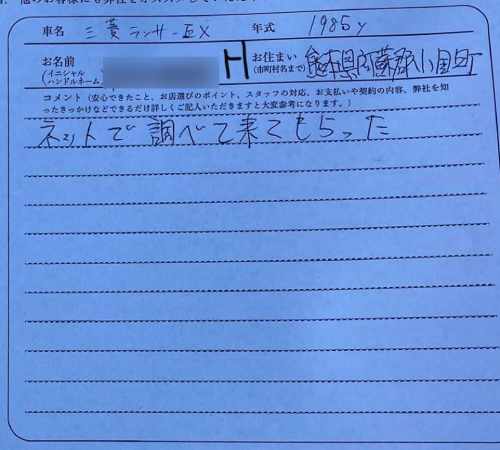 車名 三菱ランサーEX 年式 1985y
お名前 H お住まい 熊本県阿蘇郡小国町
(イニシャル (市町村名まで)
ハンドルネーム)
コメント(安心できたこと、お店選びのポイント、スタッフの対応、お支払いや契約の内容、弊社を知
ったきっかけなどできるだけ詳しくご記入いただきますと大変参考になります。)
ネットで調べて来てもらった